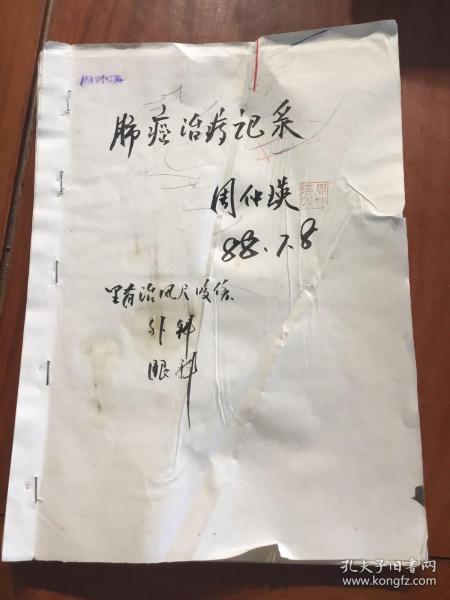 周仲瑛
肺癌治疗记录
周仲瑛
周仲瑛印
88.7.8
里有治风尺咳伤
外科
眼科
孔夫子旧书网
www.kongfz.com